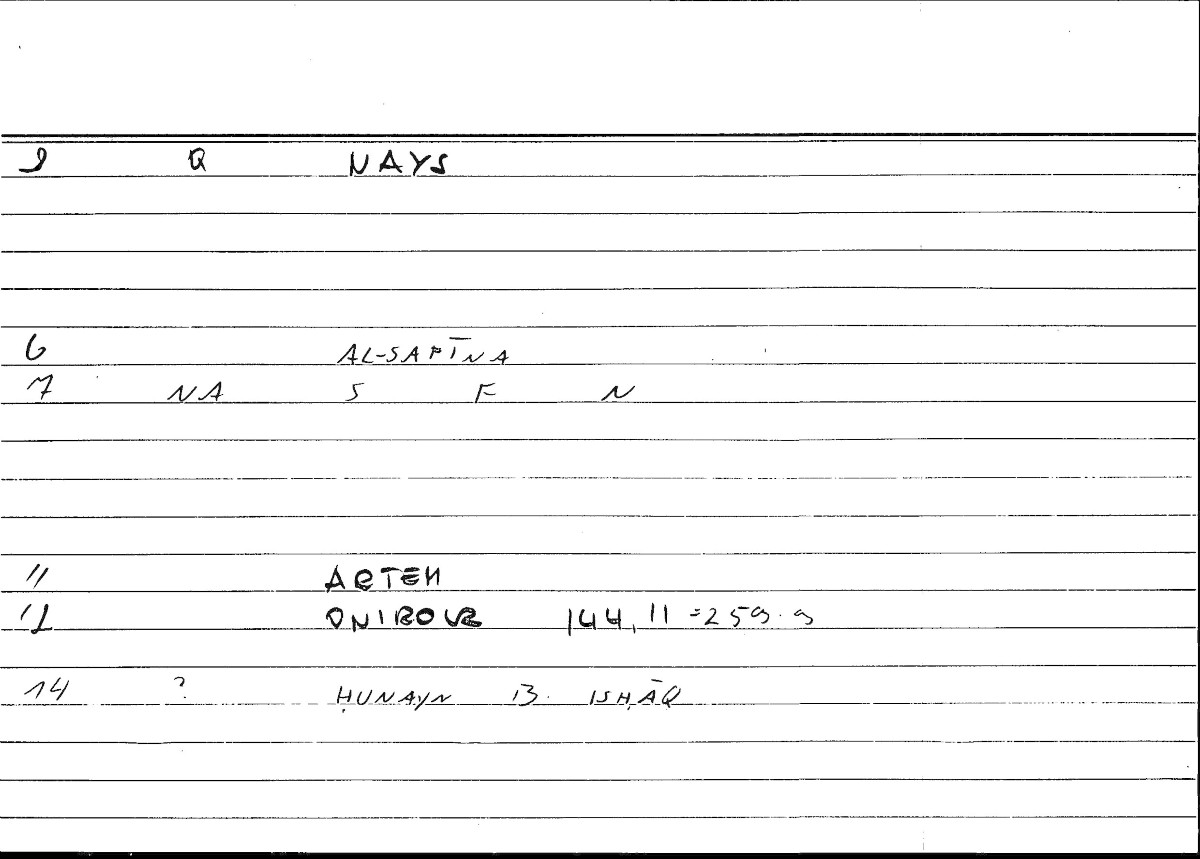 Q NAYS
6 AL-SAFĪNA
7 NA S F N
11 ARTEM
ONIROCR 144, 11 = 259. 9
14 ? ḤUNAYN B. ISḤĀQ